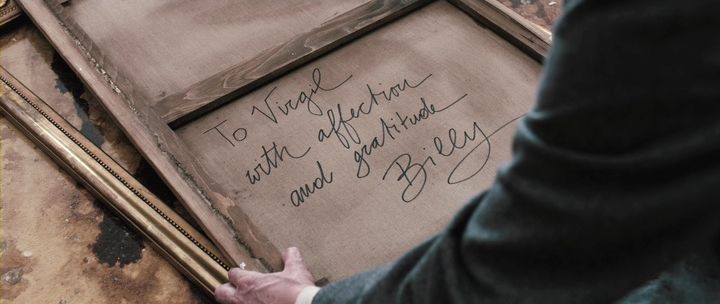 To Virgil
with affection
and gratitude
Billy